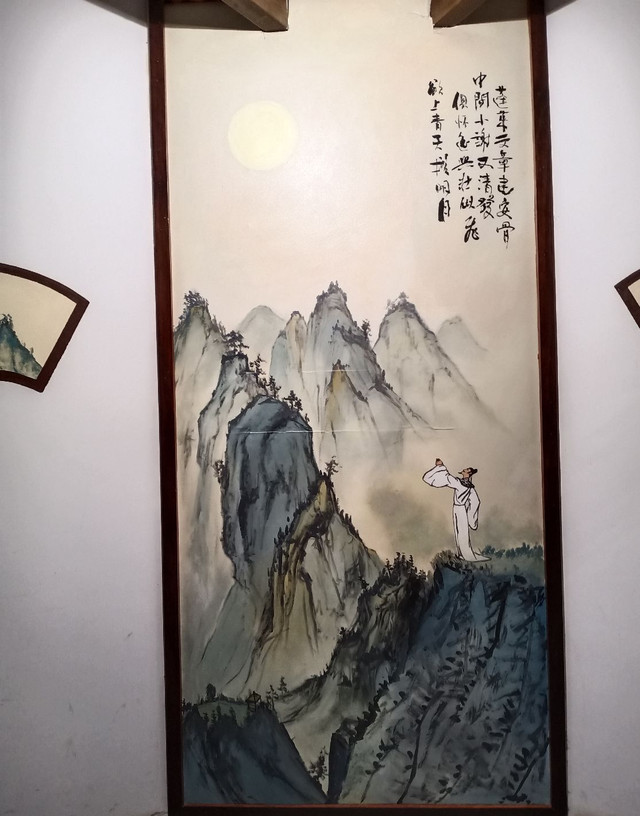 蓬莱文章建安骨
中間小謝又清發
俱怀逸兴壮思飛
欲上青天攬明月